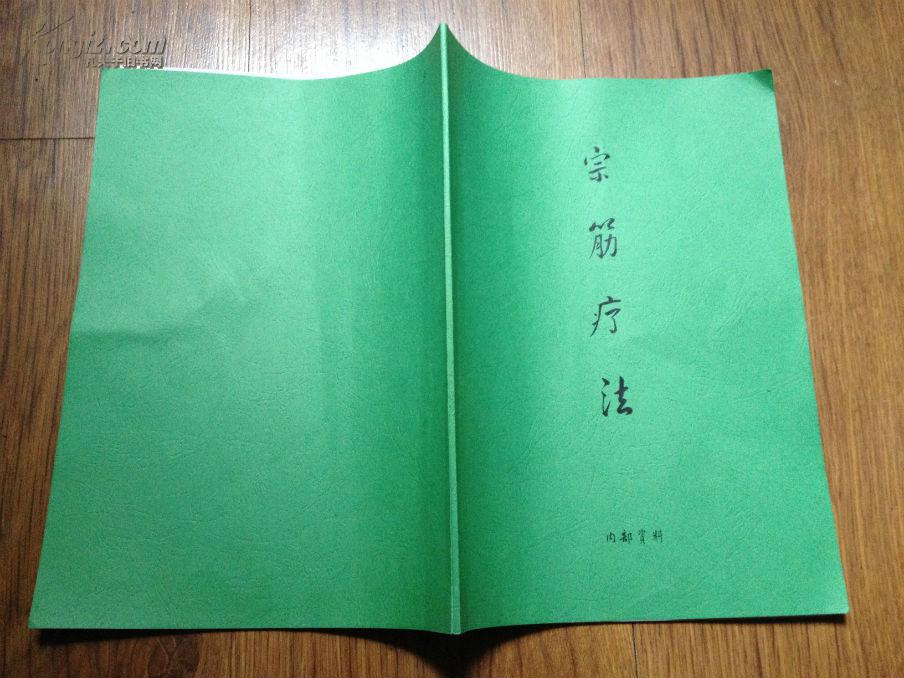 Kongfz.com
孔夫子旧书网
宗筋疗法
内部資料